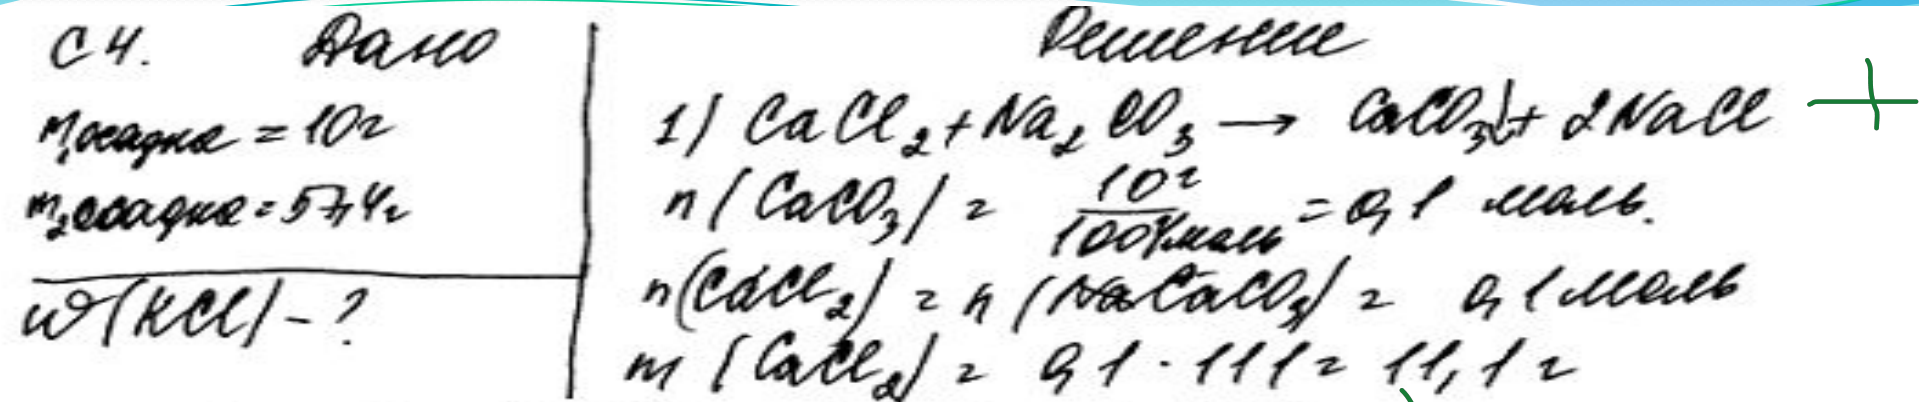 С4. Дано
m₁осадка = 10г
m₂осадка = 57,4г
w(KCl) - ?
Решение
1) CaCl₂ + Na₂CO₃ → CaCO₃↓ + 2NaCl
n(CaCO₃) = 10г / 100г/моль = 0,1 моль.
n(CaCl₂) = n(CaCO₃) = 0,1 моль
m(CaCl₂) = 0,1 · 111 = 11,1 г